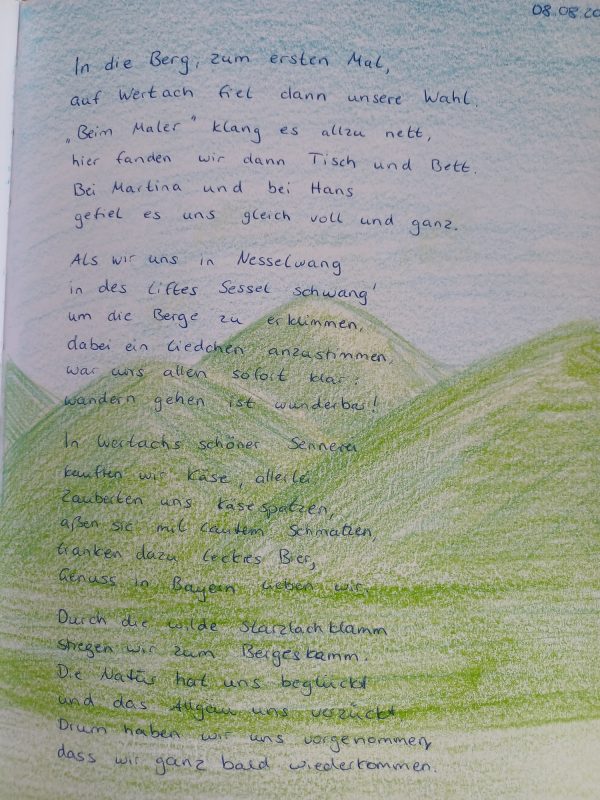 08.08.20
In die Berg, zum ersten Mal,
auf Wertach fiel dann unsere Wahl.
„Beim Maler" klang es allzu nett,
hier fanden wir dann Tisch und Bett.
Bei Martina und bei Hans
gefiel es uns gleich voll und ganz.
Als wir uns in Nesselwang
in des Liftes Sessel schwang'
um die Berge zu erklimmen,
dabei ein Liedchen anzustimmen,
war uns allen sofort klar:
wandern gehen ist wunderbar!
In Wertachs schöner Sennerei
kauften wir Käse, allerlei
Zauberten uns Käsespatzen,
aßen sie mit lautem Schmatzen,
tranken dazu leckres Bier,
Genuss in Bayern lieben wir.
Durch die wilde Starzlachklamm
stiegen wir zum Bergeskamm.
Die Natur hat uns beglückt
und das Allgäu uns verzückt
Drum haben wir uns vorgenommen,
dass wir ganz bald wiederkommen.